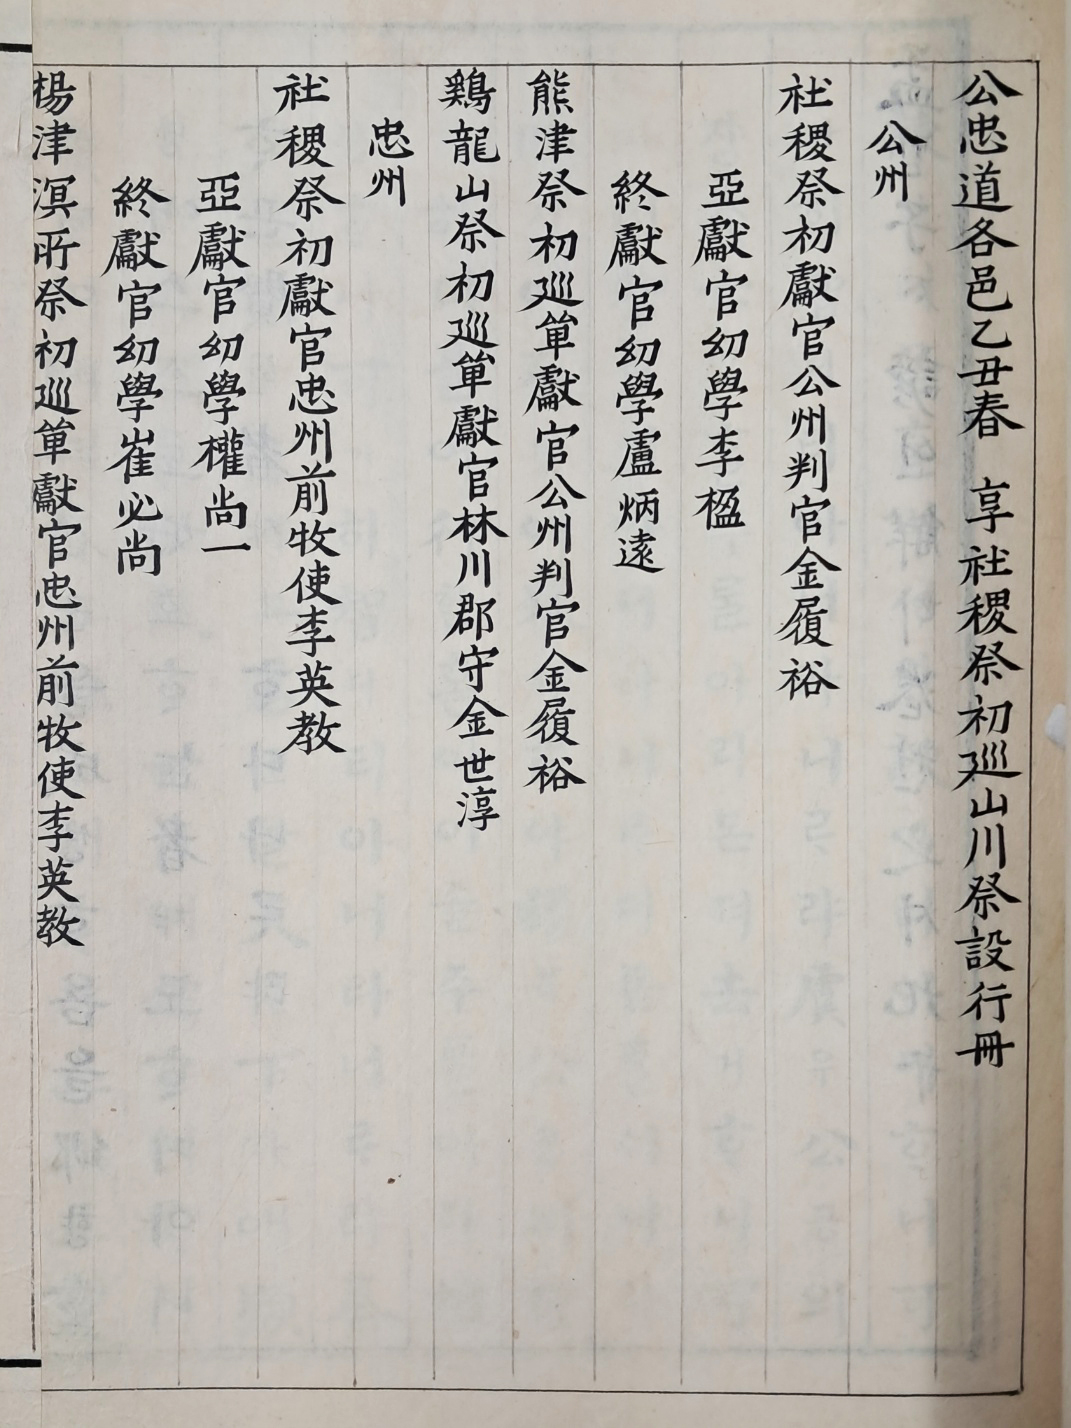 公忠道各邑乙丑春 享社稷祭初巡山川祭設行冊
公州
社稷祭初獻官公州判官金履裕
亞獻官幼學李楹
終獻官幼學盧炳遠
熊津祭初巡單獻官公州判官金履裕
鷄龍山祭初巡單獻官林川郡守金世淳
忠州
社稷祭初獻官忠州前牧使李英教
亞獻官幼學權尚一
終獻官幼學崔必尚
楊津溟所祭初巡單獻官忠州前牧使李英教